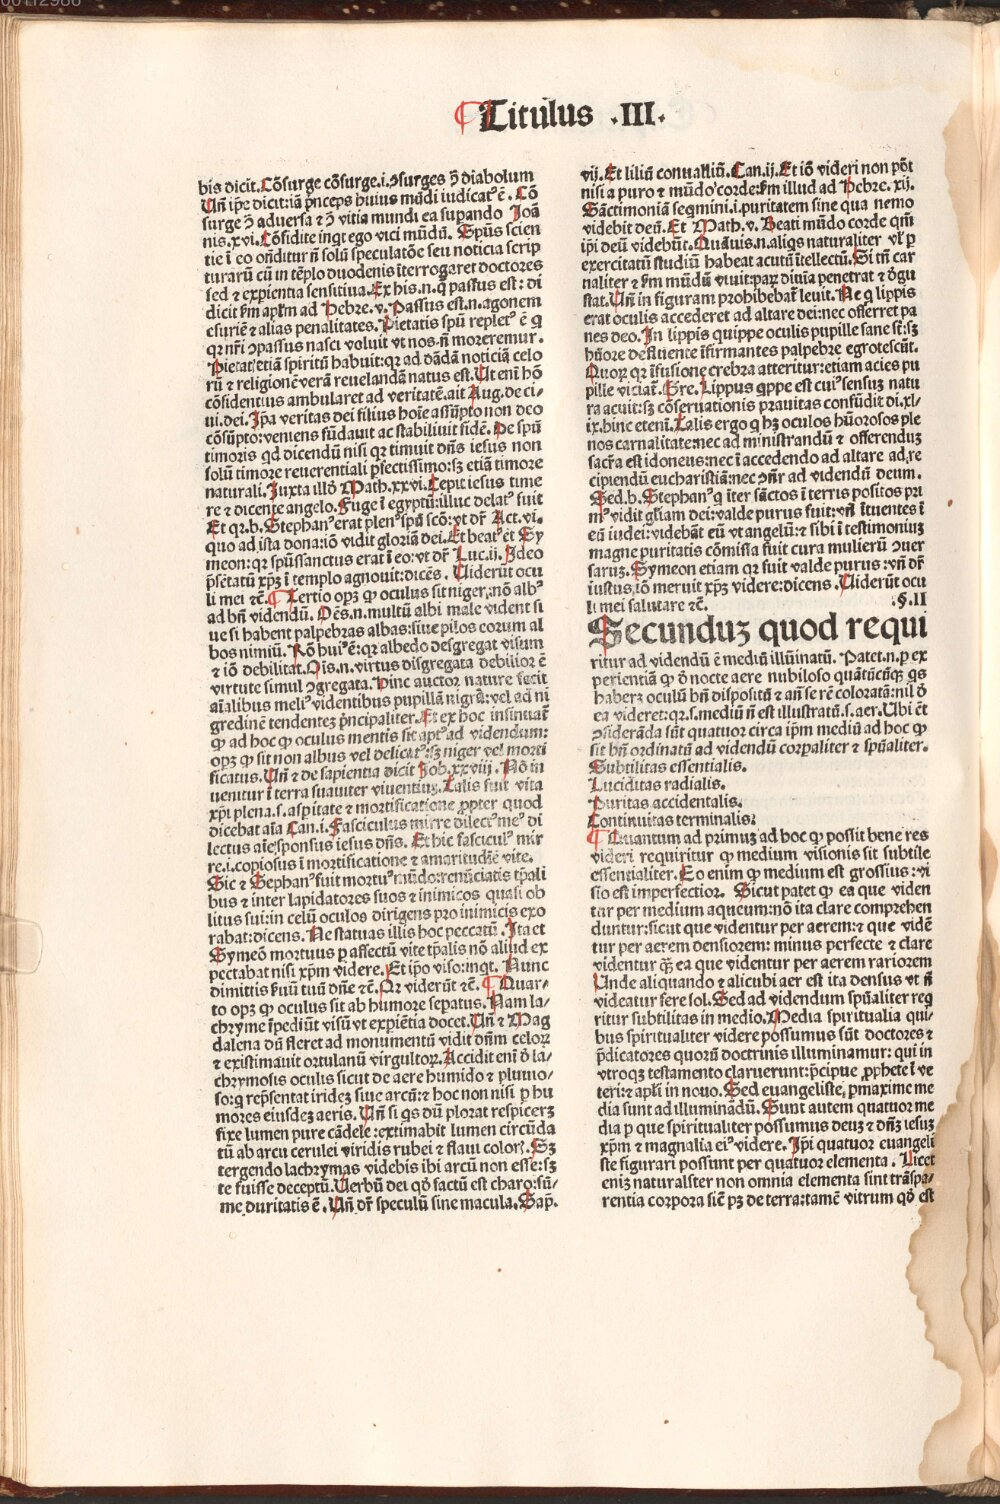 Titulus .III.
bis dicit. Cõsurge cõsurge.i.ↄsurges ↄ̃ diabolum
Uñ ip̃e dicit:iã p̃nceps huius mũdi iudicat᾽ ẽ. Cõ
surge ↄ̃ aduersa ⁊ ↄ̃ vitia mundi ea supando Joã
nis.xvi. Cõfidite inqt ego vici mũdũ. Spũs scien
tie ĩ eo oñditur ñ solũ speculatõe seu noticia scrip
turarũ cũ in tẽplo duodenis ĩterrogaret doctores
sed ⁊ expientia sensitiua. Ex his.n.q̃ passus est: di
dicit ẜm aplm ad Hebre.v. Passus est.n.agonem
esuriẽ ⁊ alias penalitates. Pietatis spũ replet᾽ ẽ q
qꝛ nr̃i ↄpassus nasci voluit vt nos.ñ moreremur.
Pietat᾽ etiã spiritũ habuit:qꝛ ad dãdã noticiã celo
rũ ⁊ religionẽ verã reuelandã natus est. Ut eni hõ
cõfidentius ambularet ad veritatẽ.ait Aug.de ci-
ui.dei. Ip̃a veritas dei filius hoĩe assũpto non deo
cõsũpto:veniens fũdauit ac stabiliuit fidẽ. De spũ
timoris qd dicendũ nisi qꝛ timuit dñs iesus non
solũ timore reuerentiali p̃fectissimo:sꝫ etiã timore
naturali. Juxta illð Math.xxvi. Cepit iesus time
re ⁊ dicente angelo. Fuge ĩ egyptũ:illuc delat᾽ fuit
Et qꝛ.b. Stephan᾽ erat plen᾽ spũ scõ:vt dr̃ Act.vi.
quo ad ista dona:iõ vidit gloriã dei. Et beat᾽ et Sy
meon:qꝛ spũssanctus erat ĩ eo:vt dr̃ Luc.ii. Ideo
p̃sẽtatũ xp̃ꝫ ĩ templo agnouit:dicẽs. Uiderũt ocu
li mei ⁊c̃. ¶ Tertio opꝫ ꝙ oculus sit niger,nõ alb᾽
ad bñ videndũ. Oẽs.n.multũ albi male vident si
ue si habent palpebras albas:siue pilos eorum al
bos nimiũ. Rõ hui᾽ ẽ:qꝛ albedo desgregat visum
⁊ iõ debilitat. Ois.n.virtus disgregata debilior ẽ
virtute simul ↄgregata. Hinc auctor nature fecit
aĩalibus meli᾽ videntibus pupillã nigrã:vel ad ni
gredinẽ tendentes p̃ncipaliter. Et ex hoc insinuat̃
ꝙ ad hoc ꝙ oculus mentis sit apt᾽ ad videndum:
opꝫ ꝙ sit non albus vel delicat᾽:sꝫ niger vel morti
ficatus. Uñ ⁊ de sapientia dicit Job.xxviii. Nõ in
uenitur ĩ terra suauiter viuentiuꝫ. Talis fuit vita
xp̃i plena.s.asp̃itate ⁊ mortificatione ꝓpter quod
dicebat aĩa Can.i. Fasciculus mirre dilect᾽ me᾽ di
lectus aĩe:sponsus iesus dñs. Et hic fascicul᾽ mir
re.i.copiosus ĩ mortificatione ⁊ amaritudiẽ vite.
Sic ⁊ Stephan᾽ fuit mortu᾽ mũdo:renũciatis tp̃ali
bus ⁊ inter lapidatores suos ⁊ inimicos quasi ob
litus sui:in celũ oculos dirigens pro inimicis exo
rabat:dicens. Ne statuas illis hoc peccatũ. Ita et
Symeõ mortuus ꝑ affectũ vite tp̃alis nõ aliud ex
pectabat nisi xp̃m videre. Et ip̃o viso:inqt. Nunc
dimittis ẜuũ tuũ dñe ⁊c̃. Qꝛ viderũt ⁊c̃. ¶ Quar-
to opꝫ ꝙ oculus sit ab humore sep̃atus. Nam la-
chryme ĩpediũt visũ vt expiẽtia docet. Uñ ⁊ Mag
dalena dũ fleret ad monumentũ vidit dñm celoꝝ
⁊ existimauit ortulanũ virgultoꝝ. Accidit eni ð la-
chrymosis oculis sicut de aere humido ⁊ pluuio-
so:q rep̃sentat irideꝫ siue arcũ:⁊ hoc non nisi ꝑ hu
mores eiusdeꝫ aeris. Uñ si qs dũ plorat respiceret
fixe lumen pure cãdele:extimabit lumen circũda
tũ ab arcu cerulei viridis rubei ⁊ flaui coloꝝ. Sꝫ
tergendo lachrymas videbis ibi arcũ non esse:sꝫ
te fuisse deceptũ. Uerbũ dei qð factũ est charo:sũ-
me puritatis ẽ. Uñ dr̃ speculũ sine macula. Sap.
vij. Et liliũ conualliũ. Can.ij. Et iõ videri non põt
nisi a puro ⁊ mũdo corde:ẜm illud ad Hebre.xij.
Sãctimoniã seqmini.i.puritatem sine qua nemo
videbit deũ. Et Math.v. Beati mũdo corde qm̃
ip̃i deũ videbũt. Quãuis.n.aliqs naturaliter vl̃ ꝑ
exercitatũ studiũ habeat acutũ ĩtellectũ. Si tñ car
naliter ⁊ ẜm mũdũ viuit:paꝝ diuia penetrat ⁊ ðgu
stat. Uñ in figuram prohibebat̃ leuit. Ne q lippis
erat oculis accederet ad altare dei:nec offerret pa
nes deo. In lippis quippe oculis pupille sane st̃:sꝫ
hũore defluente ĩfirmantes palpebre egrotescũt.
Quoꝝ qꝛ ĩfusione crebra atteritur:etiam acies pu
pille viciat̃. Gre. Lippus qppe est cui᾽ sensuꝫ natu
ra acuit:sꝫ cõseruationis prauitas confũdit di.xl-
ix.hinc eteni. Talis ergo q hꝫ oculos hũorosos ple
nos carnalitate:nec ad ministrandũ ⁊ offerenduꝫ
sacra est idoneus:nec ĩ accedendo ad altare ad re
cipiendũ eucharistiã:nec ↄñr ad videndũ deum.
Sed.b. Stephan᾽ q iter sãctos ĩ terris positos pri
m᾽ vidit gl̃iam dei:valde purus fuit:vñ ĩtuentes ĩ
eũ iudei:videbãt eũ vt angelũ:⁊ sibi ĩ testimoniuꝫ
magne puritatis cõmissa fuit cura mulierũ ↄuer
saruꝫ. Symeon etiam qꝛ fuit valde purus:vñ dr̃
iustus,iõ meruit xp̃ꝫ videre:dicens. Uiderũt ocu
li mei salutare ⁊c̃. .§.II
Secunduꝫ quod requi
ritur ad videndũ ẽ mediũ illũinatũ. Patet.n.ꝑ ex
perientiã ꝙ ð nocte aere nubiloso quãtũcũqꝫ qs
haberꝫ oculũ bñ dispositũ ⁊ añ se rẽ coloratã:nil ð
ea videret:qꝛ.s.mediũ ñ est illustratũ.s.aer. Ubi ẽt
ↄsiderãda sũt quatuor circa ip̃m mediũ ad hoc ꝙ
sit bñ ordinatũ ad videndũ corꝑaliter ⁊ spũaliter.
Subtilitas essentialis.
Luciditas radialis.
Puritas accidentalis.
Continuitas terminalis.
¶ Quantum ad primuꝫ ad hoc ꝙ possit bene res
videri requiritur ꝙ medium visionis sit subtile
essentialiter. Eo enim ꝙ medium est grossius:vi
sio est imperfectior. Sicut patet ꝙ ea que viden
tur per medium aqueum:nõ ita clare comprehen
duntur:sicut que videntur per aerem:⁊ que vidẽ
tur per aerem densiorem: minus perfecte ⁊ clare
videntur q̃ꝫ ea que videntur per aerem rariorem
Unde aliquando ⁊ alicubi aer est ita densus vt ñ
videatur fere sol. Sed ad videndum spũaliter req
ritur subtilitas in medio. Media spiritualia qui-
bus spiritualiter videre possumus sũt doctores ⁊
p̃dicatores quorũ doctrinis illuminamur: qui in
vtroqꝫ testamento claruerunt:p̃cipue ꝓphete ĩ ve
teri:⁊ apl̃i in nouo. Sed euangeliste, ꝑmaxime me
dia sunt ad illuminãdũ. Sunt autem quatuor me
dia ꝑ que spiritualiter possumus deuꝫ ⁊ dñꝫ iesuꝫ
xp̃m ⁊ magnalia ei᾽ videre. Ip̃i quatuor euangeli
ste figurari possunt per quatuor elementa. Licet
eniꝫ naturaliter non omnia elementa sint trãspa-
rentia corpora siẽ pꝫ de terra:tamẽ vitrum qð est